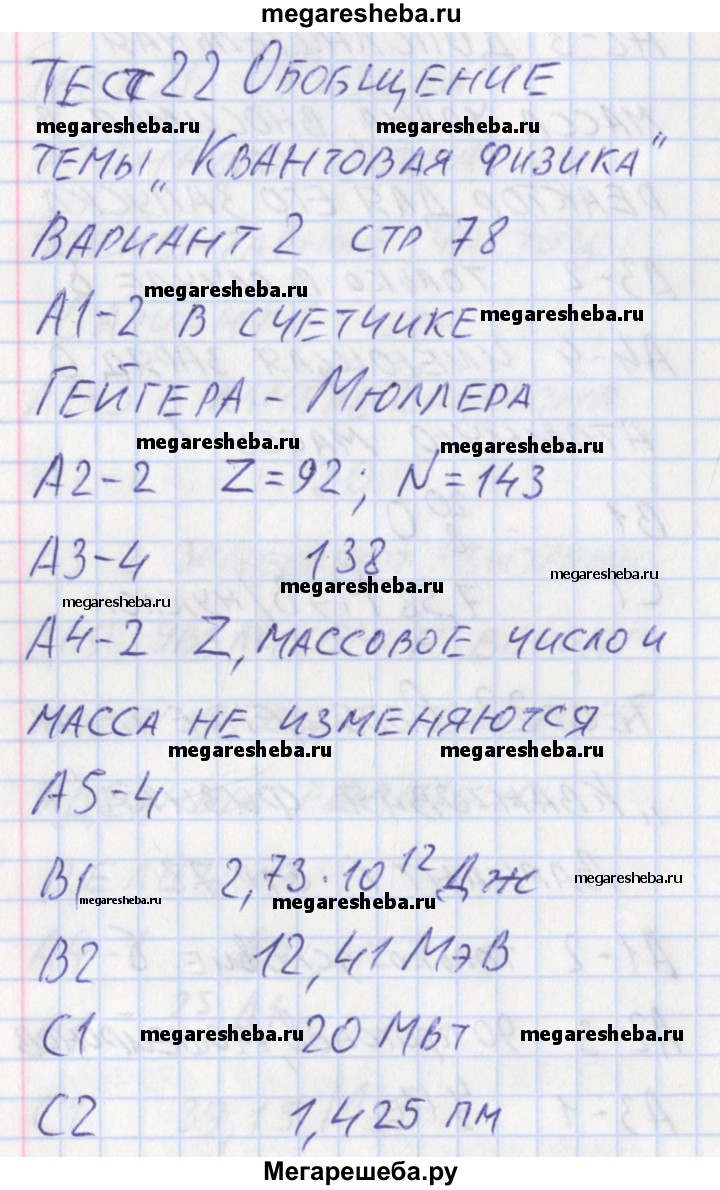 megaresheba.ru
ТЕСТ 22 ОБОБЩЕНИЕ
megaresheba.ru megaresheba.ru
ТЕМЫ „КВАНТОВАЯ ФИЗИКА"
ВАРИАНТ 2 СТР 78
megaresheba.ru
А1-2 В СЧЕТЧИКЕ megaresheba.ru
ГЕЙГЕРА - МЮЛЛЕРА
megaresheba.ru megaresheba.ru
А2-2 Z=92; N=143
А3-4 138
megaresheba.ru megaresheba.ru
megaresheba.ru
А4-2 Z, МАССОВОЕ ЧИСЛО И
МАССА НЕ ИЗМЕНЯЮТСЯ
megaresheba.ru megaresheba.ru
А5-4
В1 2,73·10¹² Дж megaresheba.ru
megaresheba.ru megaresheba.ru
В2 12,41 МэВ
С1 megaresheba.ru 20 МВт megaresheba.ru
С2 1,425 пм
Мегарешеба.ру